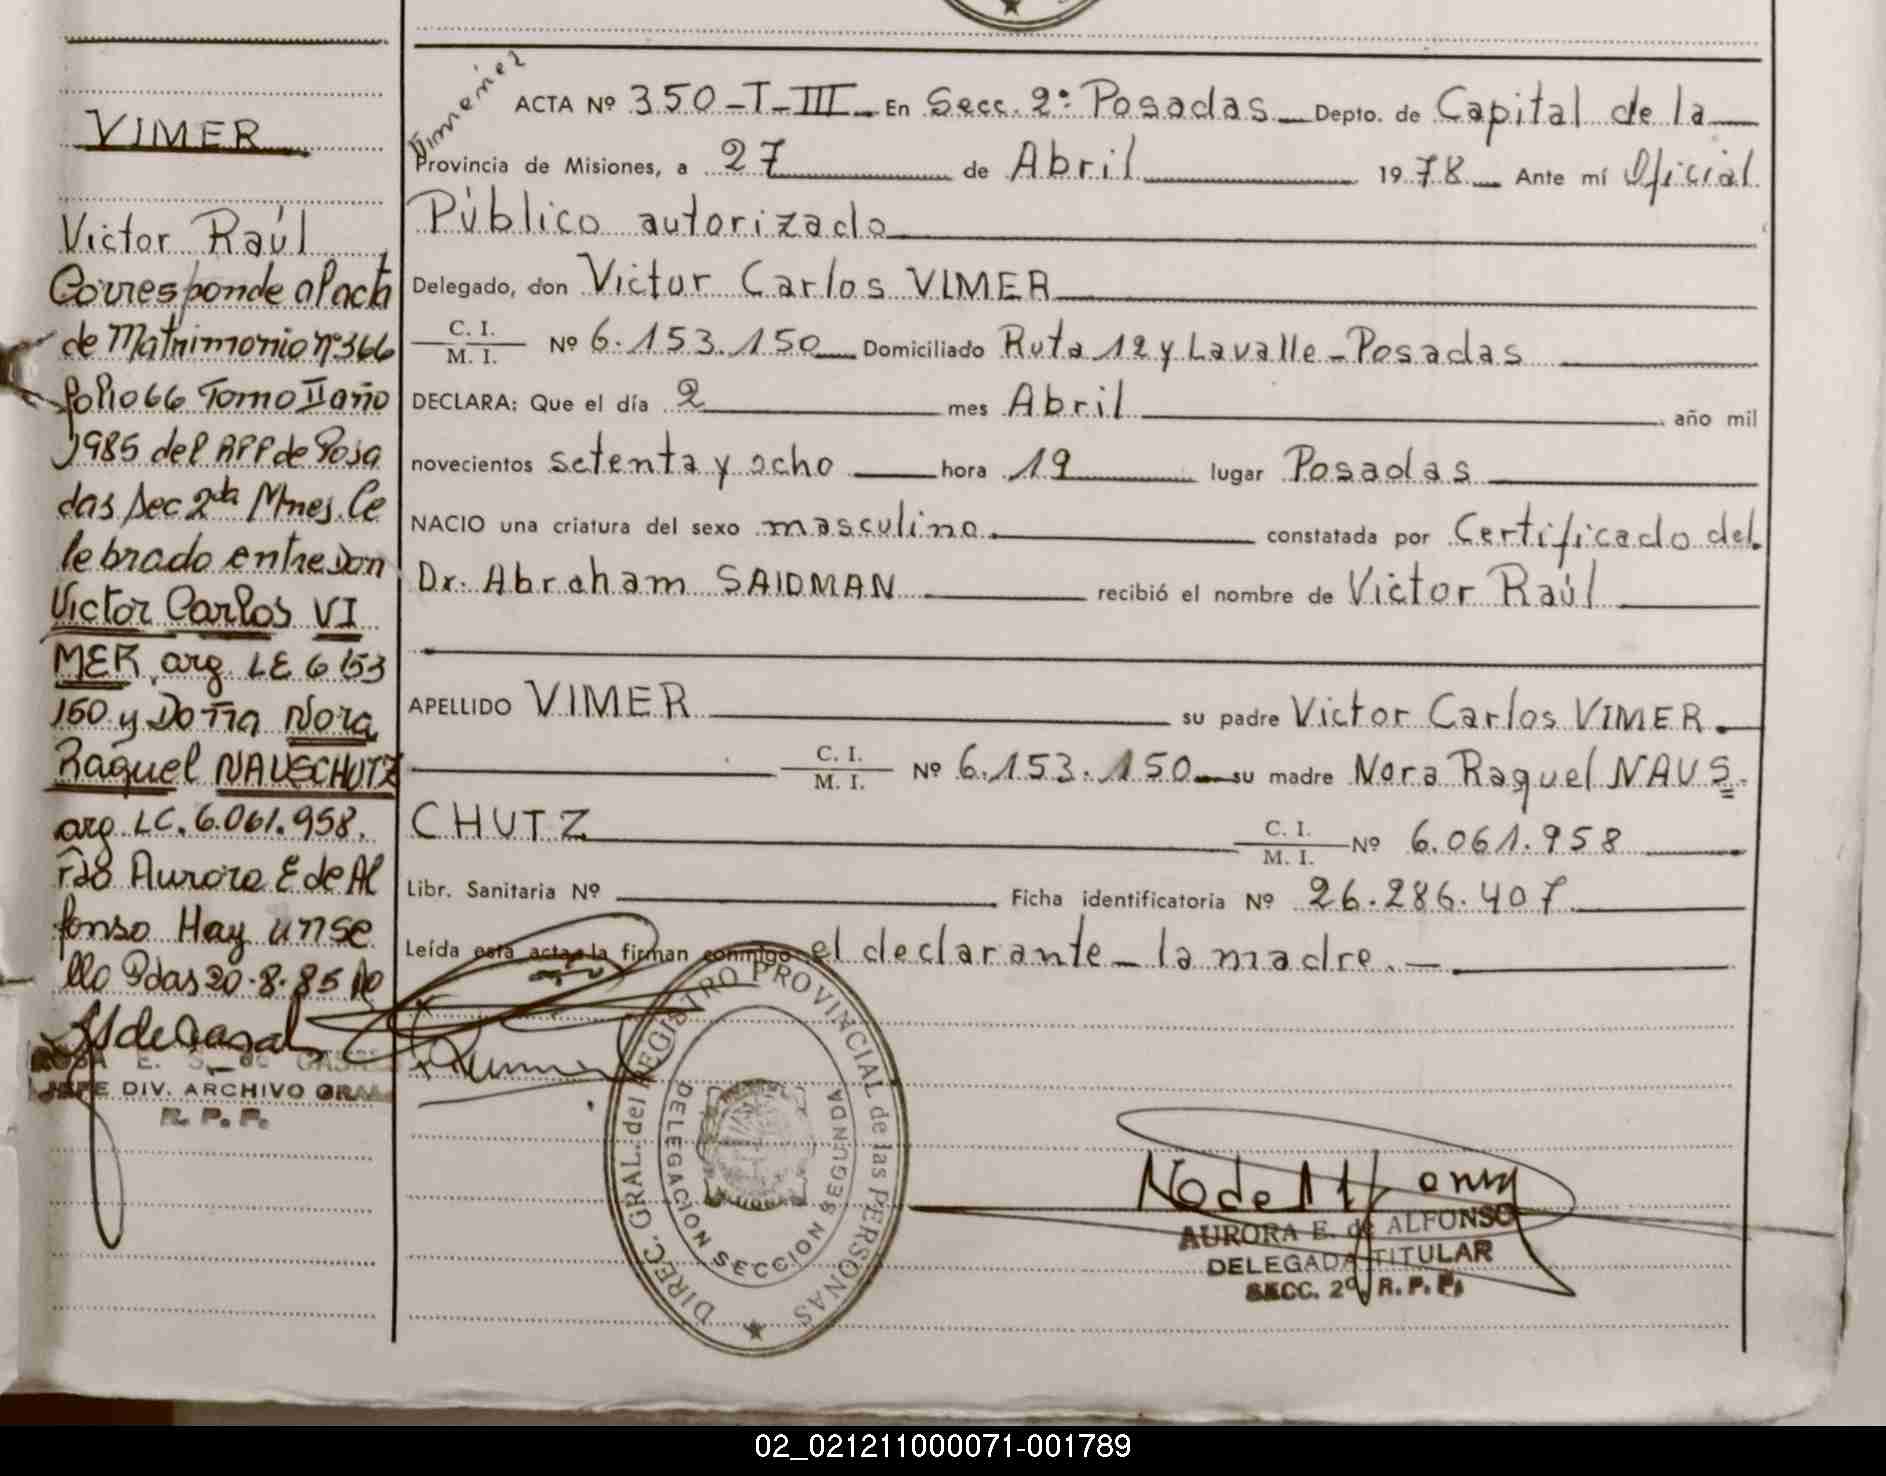 VIMER
Victor Raúl
Corresponde al acta
de Matrimonio nº 366
folio 66 Tomo II año
1985 del RPP de Posa
das Sec 2da Mnes. Ce
lebrado entre Don
Victor Carlos VI
MER, arg LE 6 153
150 y Doña Nora
Raquel NAUSCHUTZ
arg LC. 6.061.958.
Fdo Aurora E de Al
fonso Hay un se
llo Pdas 20-8-85
ROSA E. S. de CASAL
JEFE DIV. ARCHIVO GRAL
R. P. P.
Jimenez
ACTA Nº 350-T-III En Secc. 2º Posadas Depto. de Capital de la
Provincia de Misiones, a 27 de Abril 1978 Ante mí Oficial
Público autorizado
Delegado, don Victor Carlos VIMER
C. I.
M. I.
Nº 6.153.150 Domiciliado Ruta 12 y Lavalle - Posadas
DECLARA: Que el día 2 mes Abril año mil
novecientos setenta y ocho hora 19 lugar Posadas
NACIO una criatura del sexo masculino constatada por Certificado del
Dr. Abraham SAIDMAN recibió el nombre de Victor Raúl
APELLIDO VIMER su padre Victor Carlos VIMER
C. I.
M. I.
Nº 6.153.150 su madre Nora Raquel NAUS
CHUTZ
C. I.
M. I.
Nº 6.061.958
Libr. Sanitaria Nº Ficha identificatoria Nº 26.286.407
Leída esta acta la firman conmigo el declarante - la madre.-
DIREC. GRAL. del REGISTRO PROVINCIAL de las PERSONAS
DELEGACION SECCION SEGUNDA
AURORA E. de ALFONSO
DELEGADA TITULAR
SECC. 2º R. P. P.
02_021211000071-001789